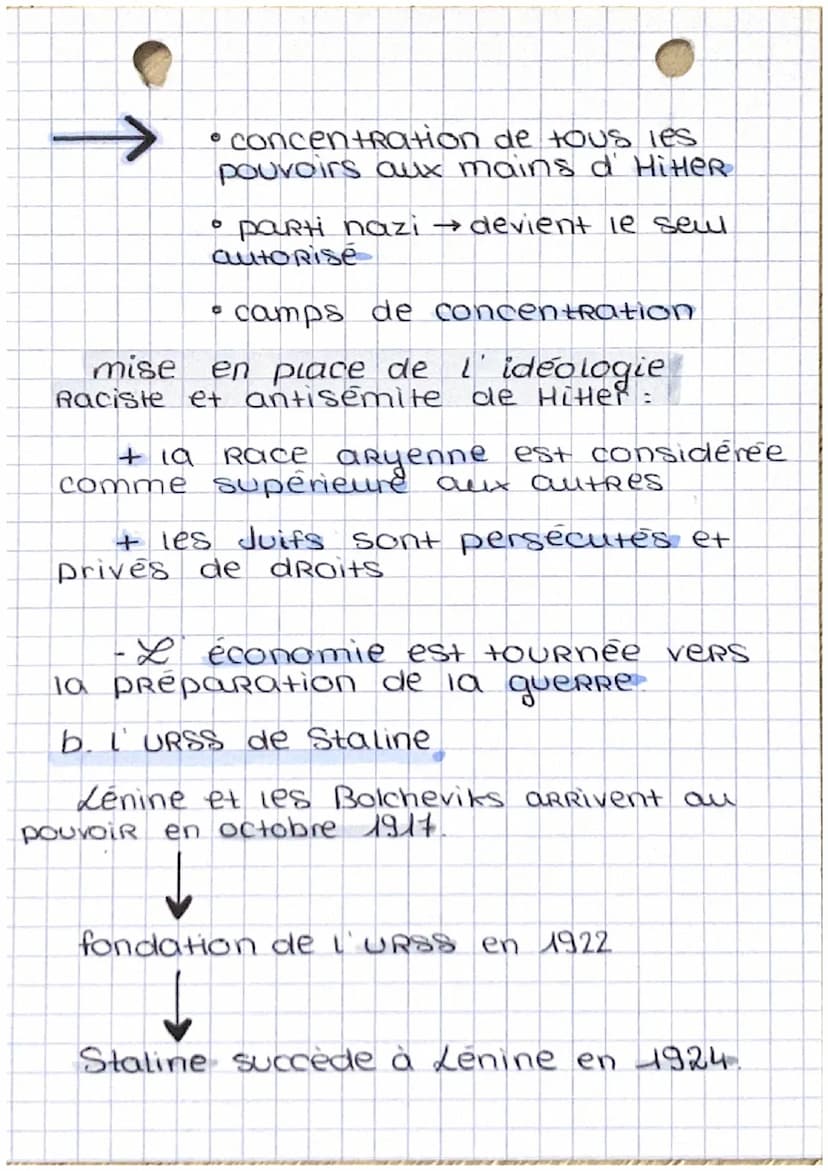 → • concentration de tous les
pouvoirs aux mains d'Hitler
• parti nazi → devient le seul
autorisé
• camps de concentration
mise en place de l'idéologie
raciste et antisémite de Hitler :
+ la race aryenne est considérée
comme supérieure aux autres
+ les Juifs sont persécutés et
privés de droits
- L'économie est tournée vers
la préparation de la guerre.
b. l'URSS de Staline
Lénine et les Bolcheviks arrivent au
pouvoir en octobre 1917.
↓
fondation de l'URSS en 1922
↓
Staline succède à Lénine en 1924.